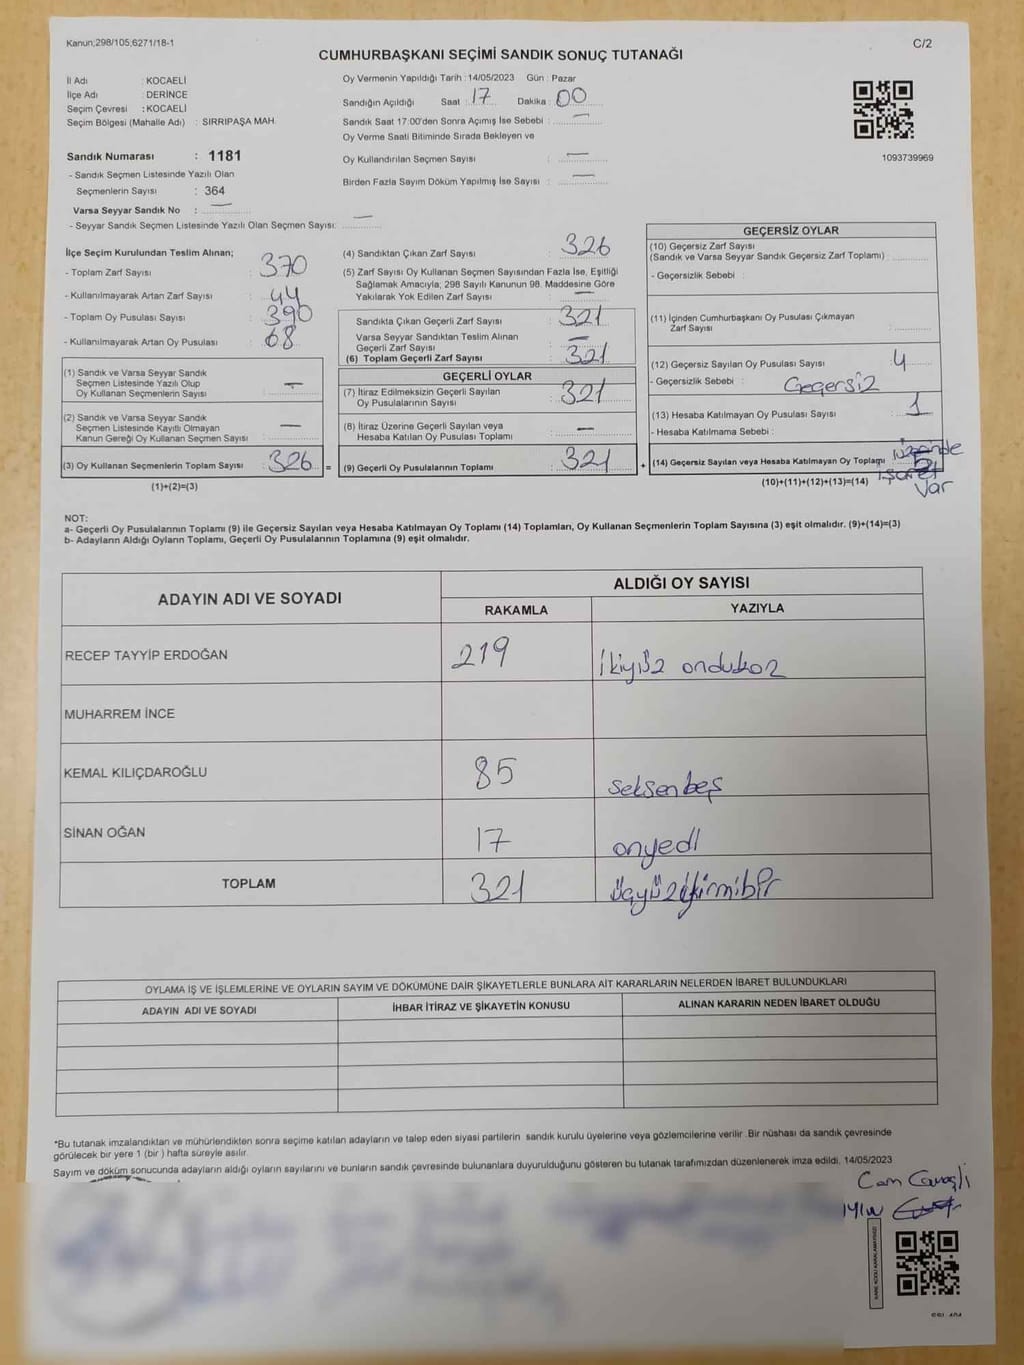 Kanun;298/105;6271/18-1
C/2
CUMHURBAŞKANI SEÇİMİ SANDIK SONUÇ TUTANAĞI
İl Adı : KOCAELİ
İlçe Adı : DERİNCE
Seçim Çevresi : KOCAELİ
Seçim Bölgesi (Mahalle Adı) : SIRRIPAŞA MAH.
Sandık Numarası : 1181
- Sandık Seçmen Listesinde Yazılı Olan
Seçmenlerin Sayısı : 364
Varsa Seyyar Sandık No : —
- Seyyar Sandık Seçmen Listesinde Yazılı Olan Seçmen Sayısı: —
Oy Vermenin Yapıldığı Tarih : 14/05/2023 Gün : Pazar
Sandığın Açıldığı Saat : 17 Dakika : 00
Sandık Saat 17:00'den Sonra Açımış İse Sebebi : —
Oy Verme Saati Bitiminde Sırada Bekleyen ve
Oy Kullandırılan Seçmen Sayısı : —
Birden Fazla Sayım Döküm Yapılmış İse Sayısı : —
1093739969
İlçe Seçim Kurulundan Teslim Alınan;
- Toplam Zarf Sayısı : 370
- Kullanılmayarak Artan Zarf Sayısı : 44
- Toplam Oy Pusulası Sayısı : 390
- Kullanılmayarak Artan Oy Pusulası : 68
(1) Sandık ve Varsa Seyyar Sandık
Seçmen Listesinde Yazılı Olup
Oy Kullanan Seçmenlerin Sayısı : —
(2) Sandık ve Varsa Seyyar Sandık
Seçmen Listesinde Kayıtlı Olmayan
Kanun Gereği Oy Kullanan Seçmen Sayısı : —
(3) Oy Kullanan Seçmenlerin Toplam Sayısı : 326 =
(1)+(2)=(3)
(4) Sandıktan Çıkan Zarf Sayısı : 326
(5) Zarf Sayısı Oy Kullanan Seçmen Sayısından Fazla İse, Eşitliği
Sağlamak Amacıyla; 298 Sayılı Kanunun 98. Maddesine Göre
Yakılarak Yok Edilen Zarf Sayısı : —
Sandıkta Çıkan Geçerli Zarf Sayısı : 321
Varsa Seyyar Sandıktan Teslim Alınan
Geçerli Zarf Sayısı : —
(6) Toplam Geçerli Zarf Sayısı : 321
GEÇERLİ OYLAR
(7) İtiraz Edilmeksizin Geçerli Sayılan
Oy Pusulalarının Sayısı : 321
(8) İtiraz Üzerine Geçerli Sayılan veya
Hesaba Katılan Oy Pusulası Toplamı : —
(9) Geçerli Oy Pusulalarının Toplamı : 321 +
GEÇERSİZ OYLAR
(10) Geçersiz Zarf Sayısı
(Sandık ve Varsa Seyyar Sandık Geçersiz Zarf Toplamı) :
- Geçersizlik Sebebi :
(11) İçinden Cumhurbaşkanı Oy Pusulası Çıkmayan
Zarf Sayısı :
(12) Geçersiz Sayılan Oy Pusulası Sayısı : 4
- Geçersizlik Sebebi : Geçersiz
(13) Hesaba Katılmayan Oy Pusulası Sayısı : 1
- Hesaba Katılmama Sebebi :
üzerinde
(14) Geçersiz Sayılan veya Hesaba Katılmayan Oy Toplamı : 5
işaret
(10)+(11)+(12)+(13)=(14) var
NOT:
a- Geçerli Oy Pusulalarının Toplamı (9) ile Geçersiz Sayılan veya Hesaba Katılmayan Oy Toplamı (14) Toplamları, Oy Kullanan Seçmenlerin Toplam Sayısına (3) eşit olmalıdır. (9)+(14)=(3)
b- Adayların Aldığı Oyların Toplamı, Geçerli Oy Pusulalarının Toplamına (9) eşit olmalıdır.
ADAYIN ADI VE SOYADI
ALDIĞI OY SAYISI
RAKAMLA YAZIYLA
RECEP TAYYİP ERDOĞAN 219 ikiyüz ondokoz
MUHARREM İNCE
KEMAL KILIÇDAROĞLU 85 seksenbeş
SİNAN OĞAN 17 onyedi
TOPLAM 321 üçyüzyirmibir
OYLAMA İŞ VE İŞLEMLERİNE VE OYLARIN SAYIM VE DÖKÜMÜNE DAİR ŞİKAYETLERLE BUNLARA AİT KARARLARIN NELERDEN İBARET BULUNDUKLARI
ADAYIN ADI VE SOYADI İHBAR İTİRAZ VE ŞİKAYETİN KONUSU ALINAN KARARIN NEDEN İBARET OLDUĞU
*Bu tutanak imzalandıktan ve mühürlendikten sonra seçime katılan adayların ve talep eden siyasi partilerin sandık kurulu üyelerine veya gözlemcilerine verilir. Bir nüshası da sandık çevresinde
görülecek bir yere 1 (bir ) hafta süreyle asılır.
Sayım ve döküm sonucunda adayların aldığı oyların sayılarını ve bunların sandık çevresinde bulunanlara duyurulduğunu gösteren bu tutanak tarafımızdan düzenlenerek imza edildi, 14/05/2023